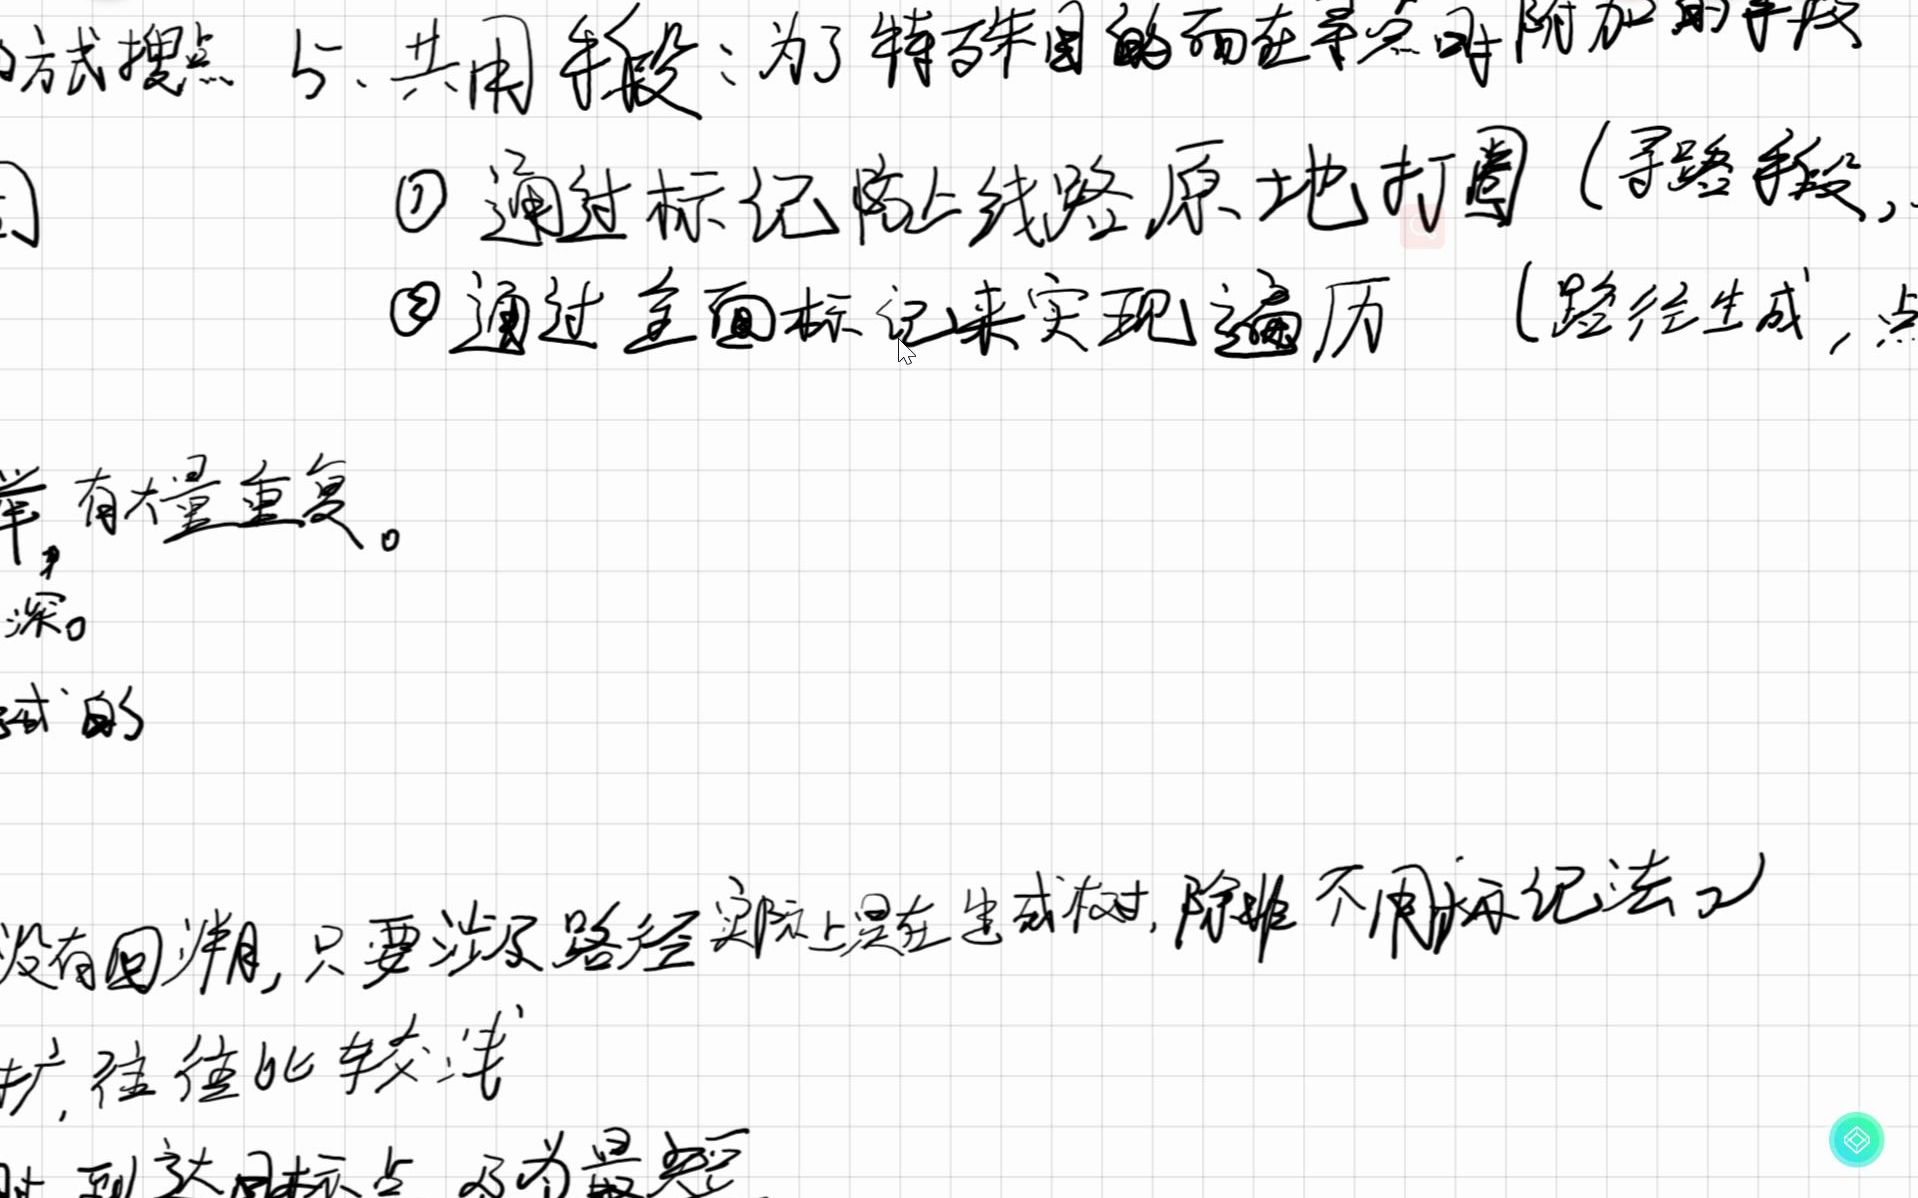 方式搜点 5.共用手段：为了特殊目的而在寻点时附加的手段
① 通过标记防止线路原地打圈（寻路手段，
② 通过全面标记来实现遍历 （路径生成，点
有大量重复。
深。
试的
没有回溯，只要涉及路径实际上是在生成树，除非不用标记法
扩，往往比较浅
时到达目标点 即为最短